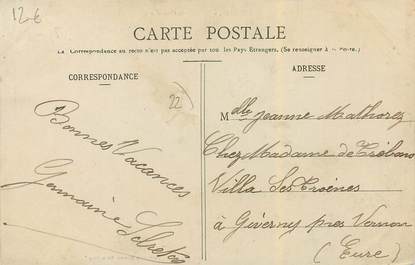 12€
CARTE POSTALE
La Correspondance au recto n'est pas acceptée par tous les Pays Étrangers. (Se renseigner à la Poste.)
CORRESPONDANCE
ADRESSE
22
Bonnes Vacances
Germaine
Mdlle Jeanne Mathorez
Chez Madame de
Villa Les Troènes
à Giverny près Vernon
(Eure)